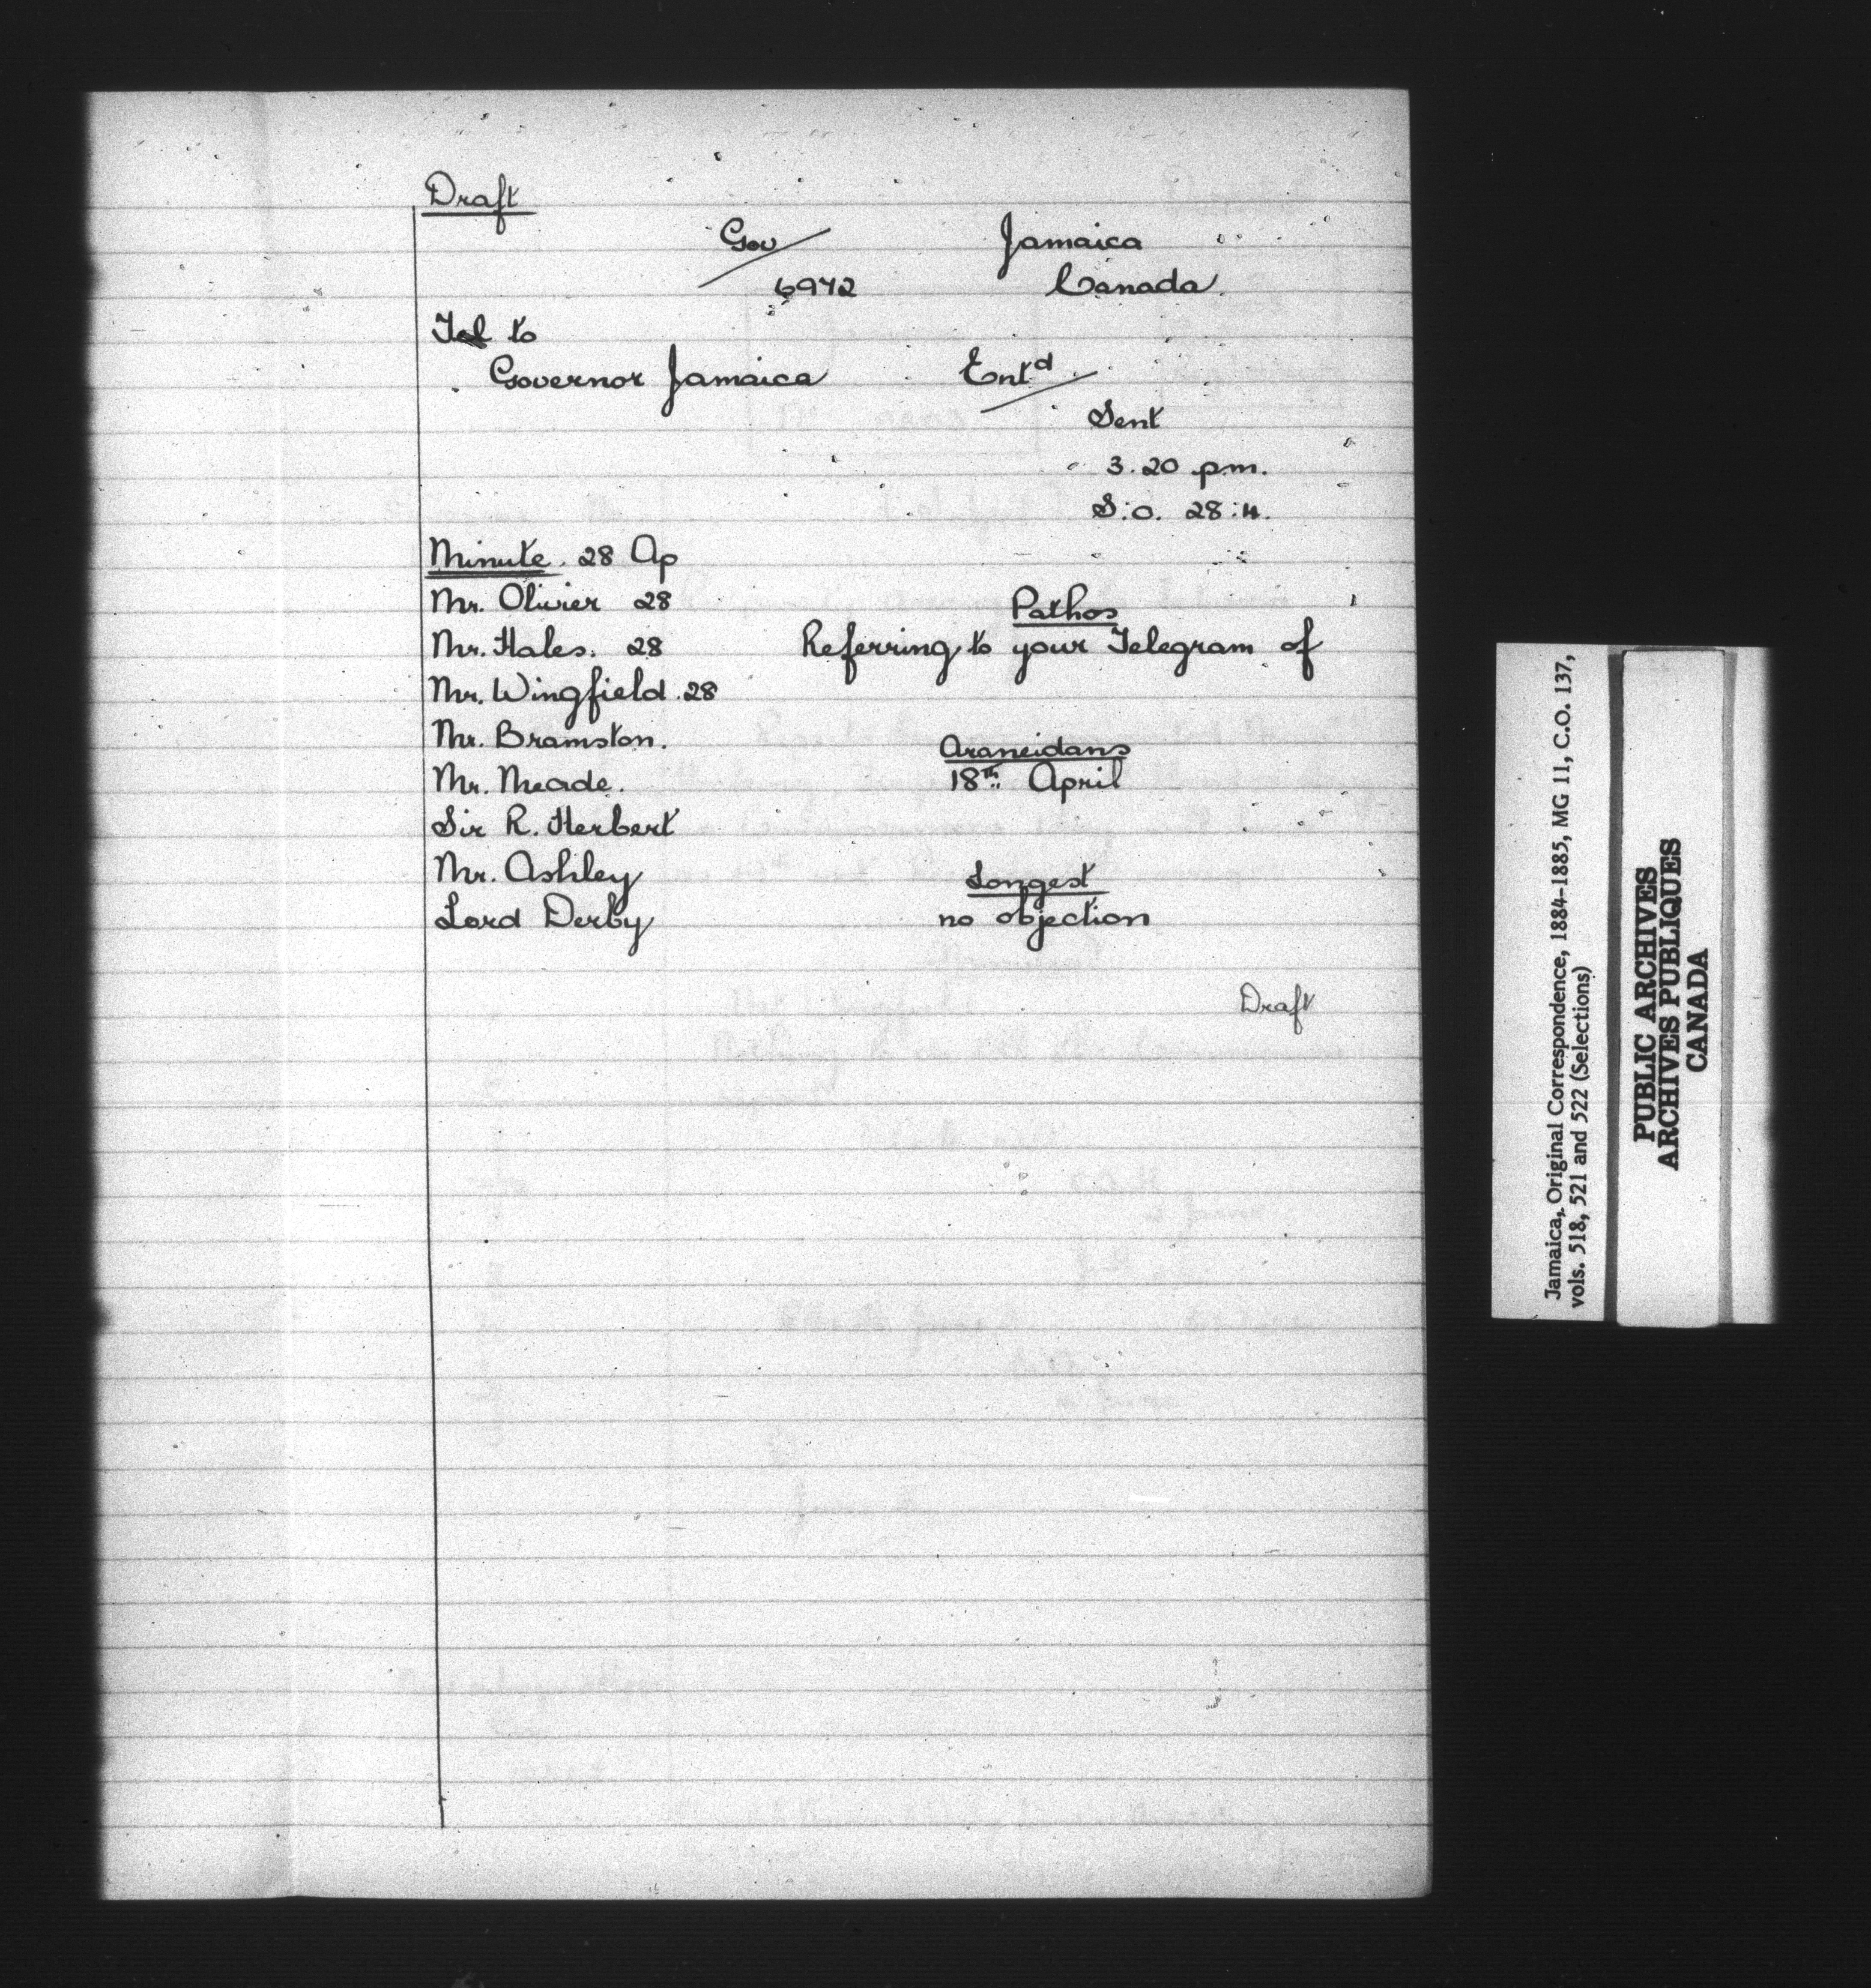 Draft
Gov Jamaica
6942 Canada
Tel to
Governor Jamaica Entd
Sent
3.20 p.m.
S.O. 28:4.
Minute. 28 Ap
Mr. Olivier 28 Pathos
Mr. Hales. 28 Referring to your Telegram of
Mr. Wingfield. 28
Mr. Bramston. Araneidans
Mr. Meade. 18th April
Sir R. Herbert
Mr. Ashley Longest
Lord Derby no objection
Draft
Jamaica, Original Correspondence, 1884-1885, MG 11, C.O. 137,
vols. 518, 521 and 522 (Selections)
PUBLIC ARCHIVES
ARCHIVES PUBLIQUES
CANADA